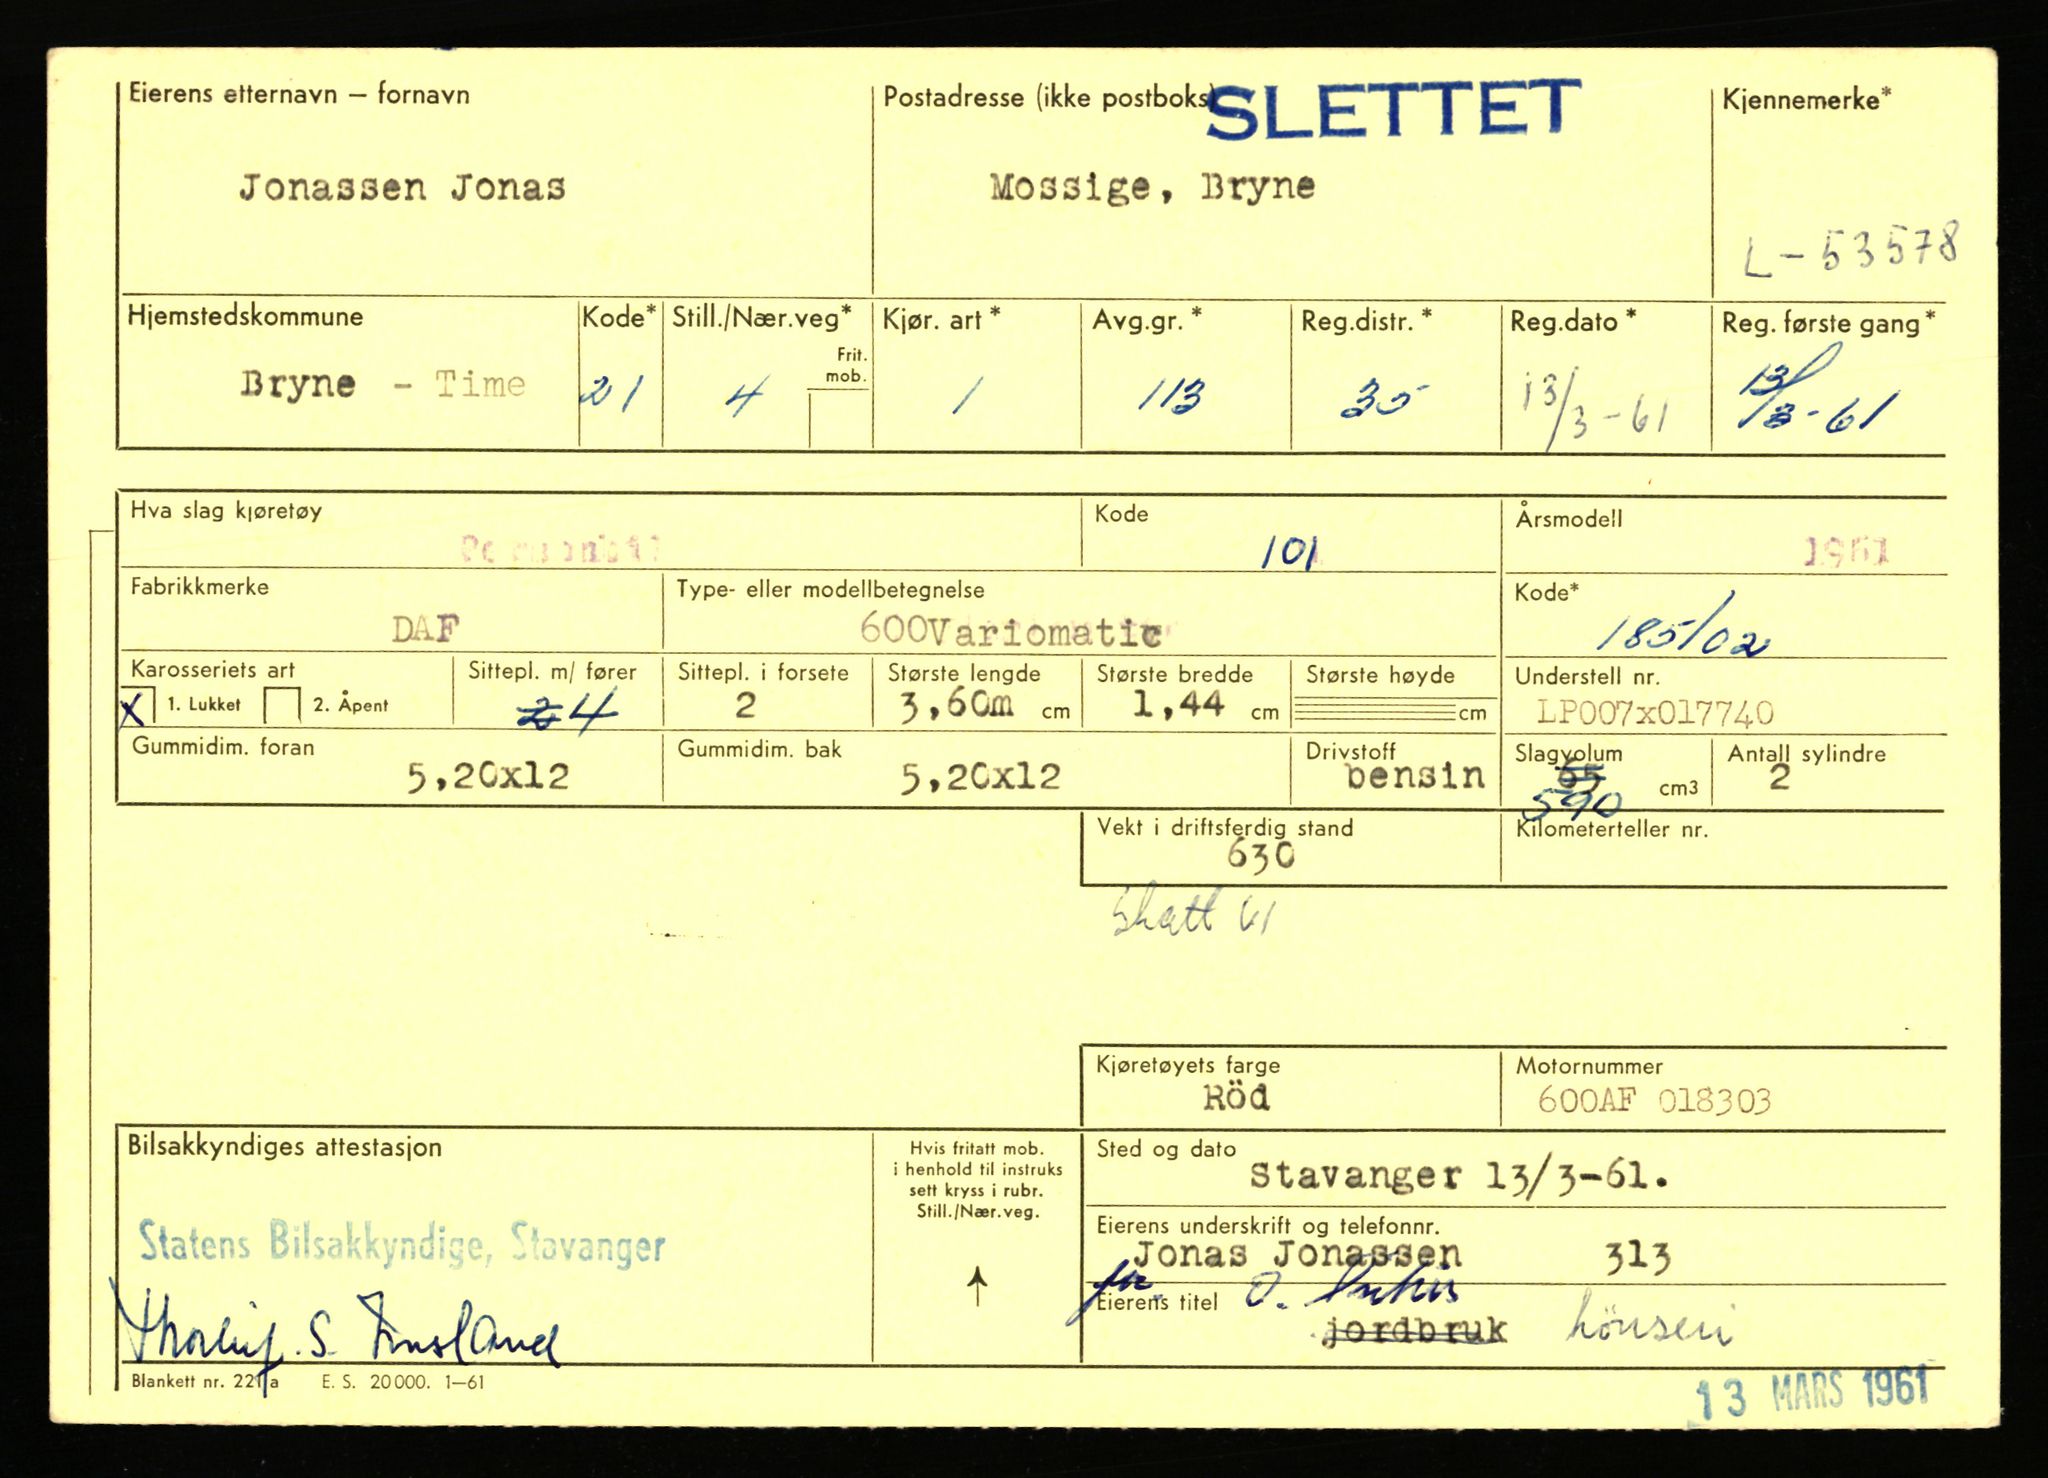 Eierens etternavn – fornavn
Jonassen Jonas
Postadresse (ikke postboks)
SLETTET
Mossige, Bryne
Kjennemerke*
L-53578
Hjemstedskommune
Bryne - Time
Kode*
21
Still./Nær.veg*
4
Frit.
mob.
Kjør. art*
1
Avg.gr.*
113
Reg.distr.*
35
Reg.dato*
13/3-61
Reg. første gang*
13/3-61
Hva slag kjøretøy
Personbil
Kode
101
Årsmodell
1961
Fabrikkmerke
DAF
Type- eller modellbetegnelse
600Variomatic
Kode*
185/02
Karosseriets art
X 1. Lukket 2. Åpent
Sittepl. m/ fører
2 4
Sittepl. i forsete
2
Største lengde
3,60m cm
Største bredde
1,44 cm
Største høyde
cm
Understell nr.
LP007x017740
Gummidim. foran
5,20x12
Gummidim. bak
5,20x12
Drivstoff
bensin
Slagvolum
65
590 cm3
Antall sylindre
2
Vekt i driftsferdig stand
630
Kilometerteller nr.
Skatt 61
Kjøretøyets farge
Röd
Motornummer
600AF 018303
Bilsakkyndiges attestasjon
Statens Bilsakkyndige, Stavanger
Hvis fritatt mob.
i henhold til instruks
sett kryss i rubr.
Still./Nær.veg.
Sted og dato
Stavanger 13/3-61.
Eierens underskrift og telefonnr.
Jonas Jonassen 313
Eierens titel
jordbruk hönseri
Blankett nr. 221 a E. S. 20000. 1–61
13 MARS 1961